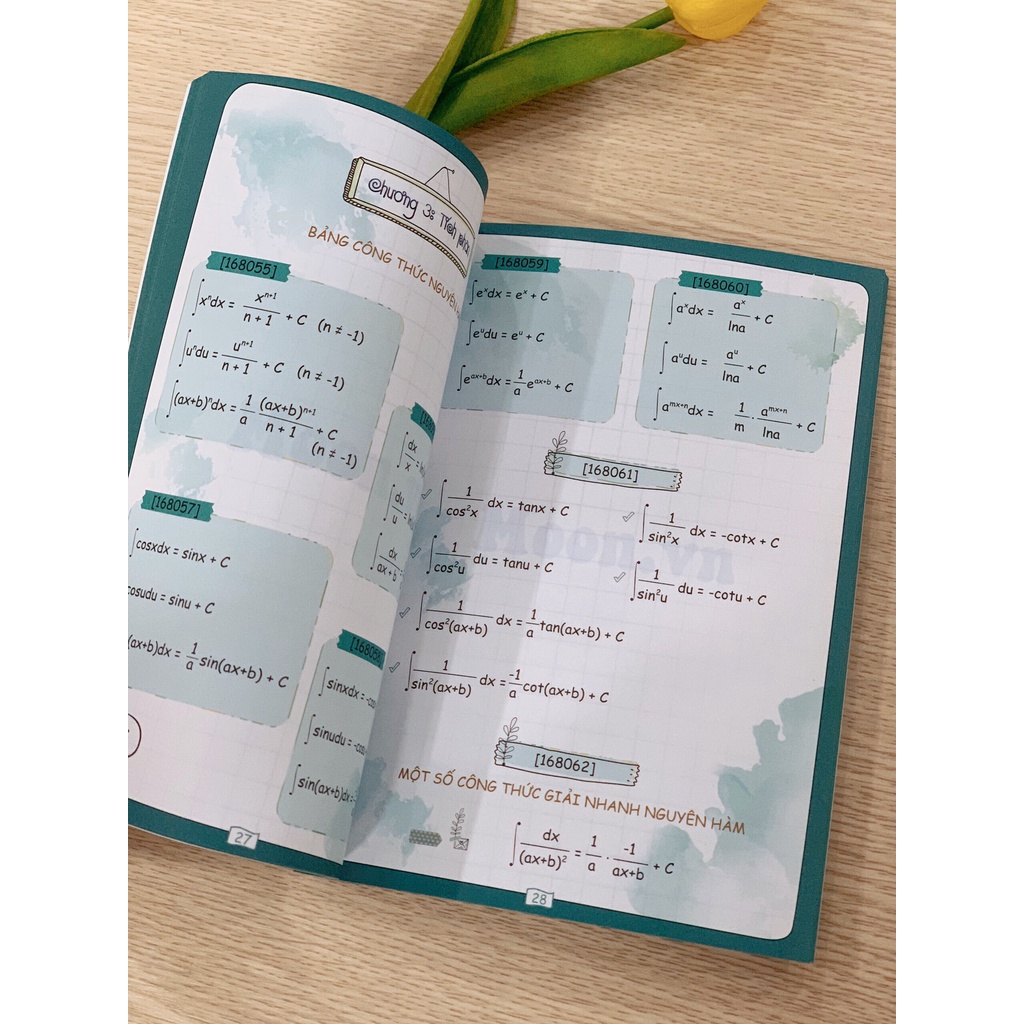 Chương 3: Tích phân
BẢNG CÔNG THỨC NGUYÊN
[168055]
∫xⁿdx = xⁿ⁺¹/(n + 1) + C (n ≠ -1)
∫uⁿdu = uⁿ⁺¹/(n + 1) + C (n ≠ -1)
∫(ax+b)ⁿdx = 1/a (ax+b)ⁿ⁺¹/(n + 1) + C
(n ≠ -1)
dx/x =
du/u =
∫dx/(ax+b)
[168057]
∫cosxdx = sinx + C
cosudu = sinu + C
(ax+b)dx = 1/a sin(ax+b) + C
[168058
∫sinxdx = -cos
∫sinudu = -cos
∫sin(ax+b)dx = -
27
[168059]
∫eˣdx = eˣ + C
∫eᵘdu = eᵘ + C
∫eᵃˣ⁺ᵇdx = 1/a eᵃˣ⁺ᵇ + C
[168060]
∫aˣdx = aˣ/lna + C
∫aᵘdu = aᵘ/lna + C
∫aᵐˣ⁺ⁿdx = 1/m · aᵐˣ⁺ⁿ/lna + C
[168061]
∫1/cos²x dx = tanx + C
∫1/sin²x dx = -cotx + C
∫1/cos²u du = tanu + C
∫1/sin²u du = -cotu + C
∫1/cos²(ax+b) dx = 1/a tan(ax+b) + C
∫1/sin²(ax+b) dx = -1/a cot(ax+b) + C
[168062]
MỘT SỐ CÔNG THỨC GIẢI NHANH NGUYÊN HÀM
∫dx/(ax+b)² = 1/a · -1/(ax+b) + C
28